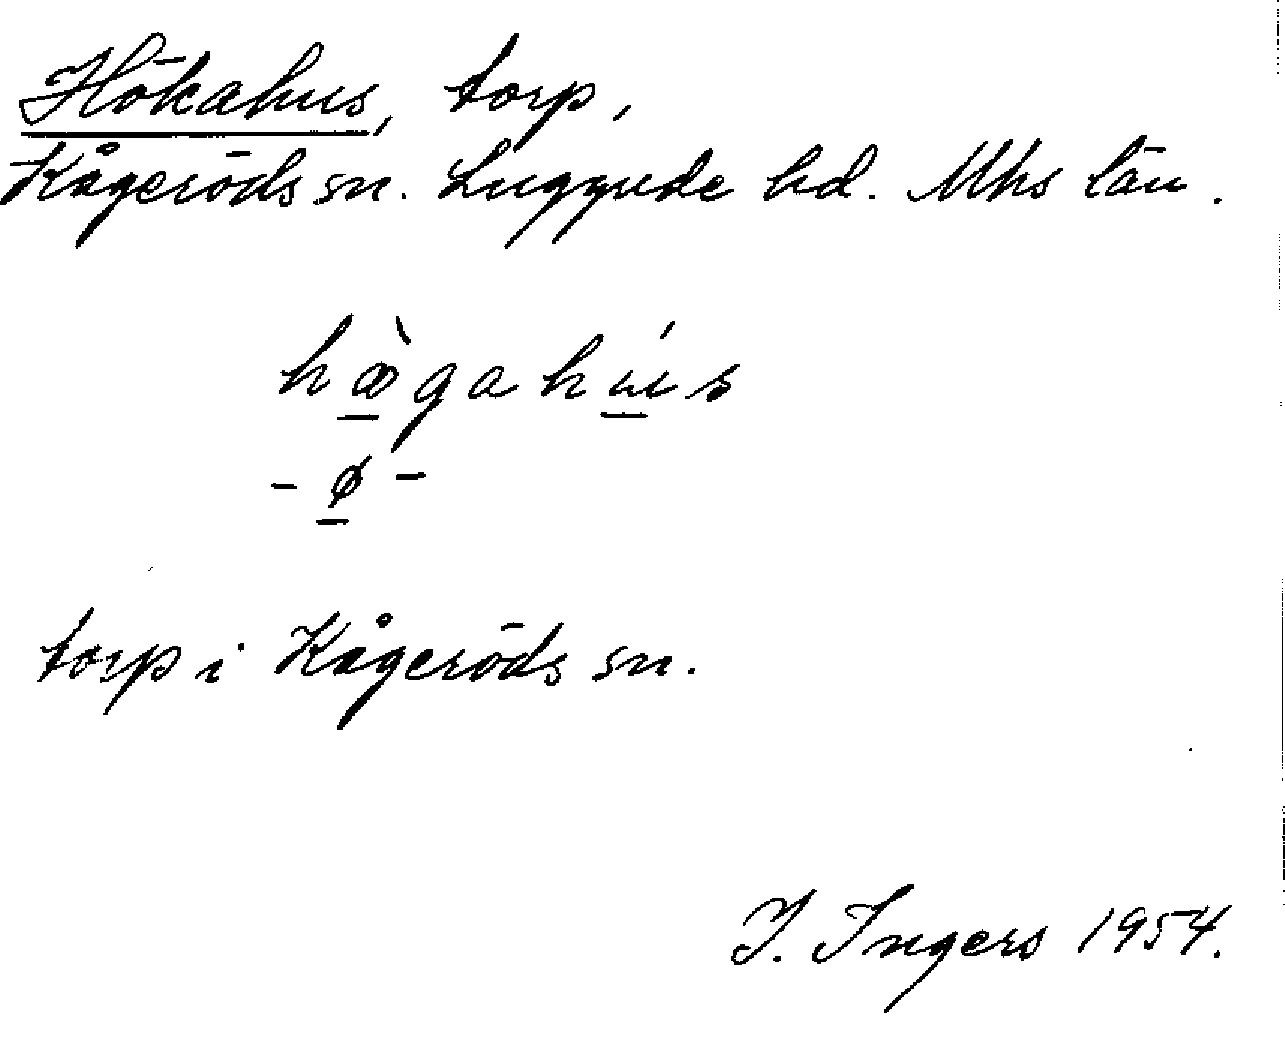 Hökahus, torp,
Kågeröds sn. Luggude hd. Mhs län.
hœ̀gahús
- ø -
torp i Kågeröds sn.
I. Ingers 1954.